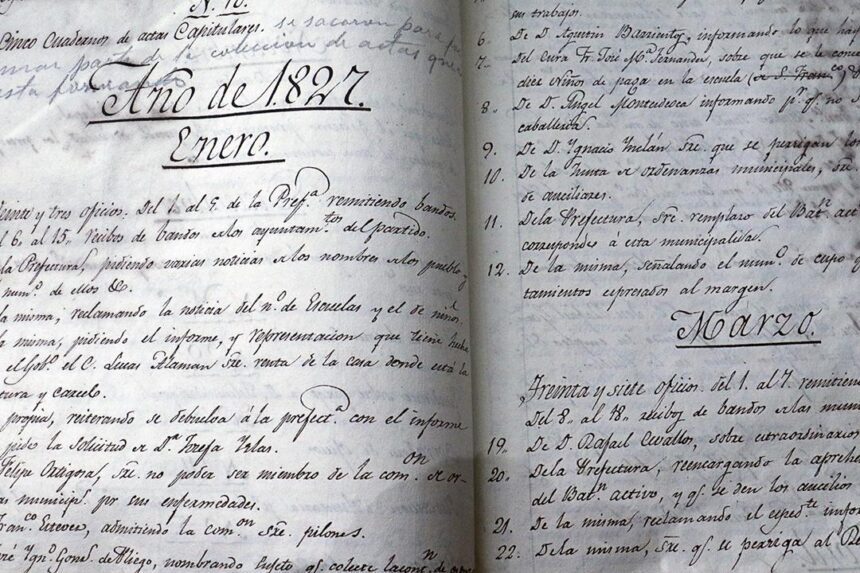 N. 10.
Cinco Cuadernos de actas Capitulares. se sacaron para
mar parte de la coleccion de actas que
esta formando
Año de 1.827.
Enero.
einte y tres oficios. Del 1 al 5 de la Pref.ª remitiendo bandos.
6. al 15., recibos de bandos a los ayuntam.tos del partido.
la Prefectura, pidiendo varias noticias a los nombres a los pueblos y
num.º de ellos &c.
la misma; reclamando la noticia del n.º de Escuelas y el de niños
misma, pidiendo el informe, y representacion que tiene hecha
el Gob.º el C. Lucas Alaman sre. renta de la casa donde está la
tura y carcel.
propia, reiterando se debuelva á la prefect.ª con el informe
pide la solicitud de D.ª Teresa Yslas.
Felipe Ortigosa, sre. no poder ser miembro de la com.on de or-
as municip.s por sus enfermedades.
Fran.co Estevez, admitiendo la com.on sre. pilones.
Ygn.º Gons. de Pliego, nombrando sujeto q.e colecte la cont.n de
sus trabajos.
6. De D. Agustin Barrientos, informando lo que hay
7. Del Cura Fr. José M.ª Fernandez, sobre que se le
diez Niños de paga en la escuela (de S. Fran.co)
8. De D. Angel Montedeoca informando p.r q.e no
caballeria.
9. De D. Ygnacio Ynclán sre. que se persigan los
10. De la Junta de ordenanzas municipales, sre.
de auxiliares.
11. Dela Prefectura, sre. remplazo del Bat.n
corresponde á esta municipalid.d
12. De la misma, señalando el num.º de cupo
tamientos espresados al margen.
Marzo.
Treinta y siete oficios. del 1. al 7. remitien
Del 8. al 18., recibos de bandos a las
19. De D. Rafael Cevallos, sobre extraordinarios
20. Dela Prefectura, reencargando la apreh
del Bat.n activo, y q.e se den los auxilios
21. De la misma, reclamando el esped.te
22. Dela misma, sre. q.e se persiga al